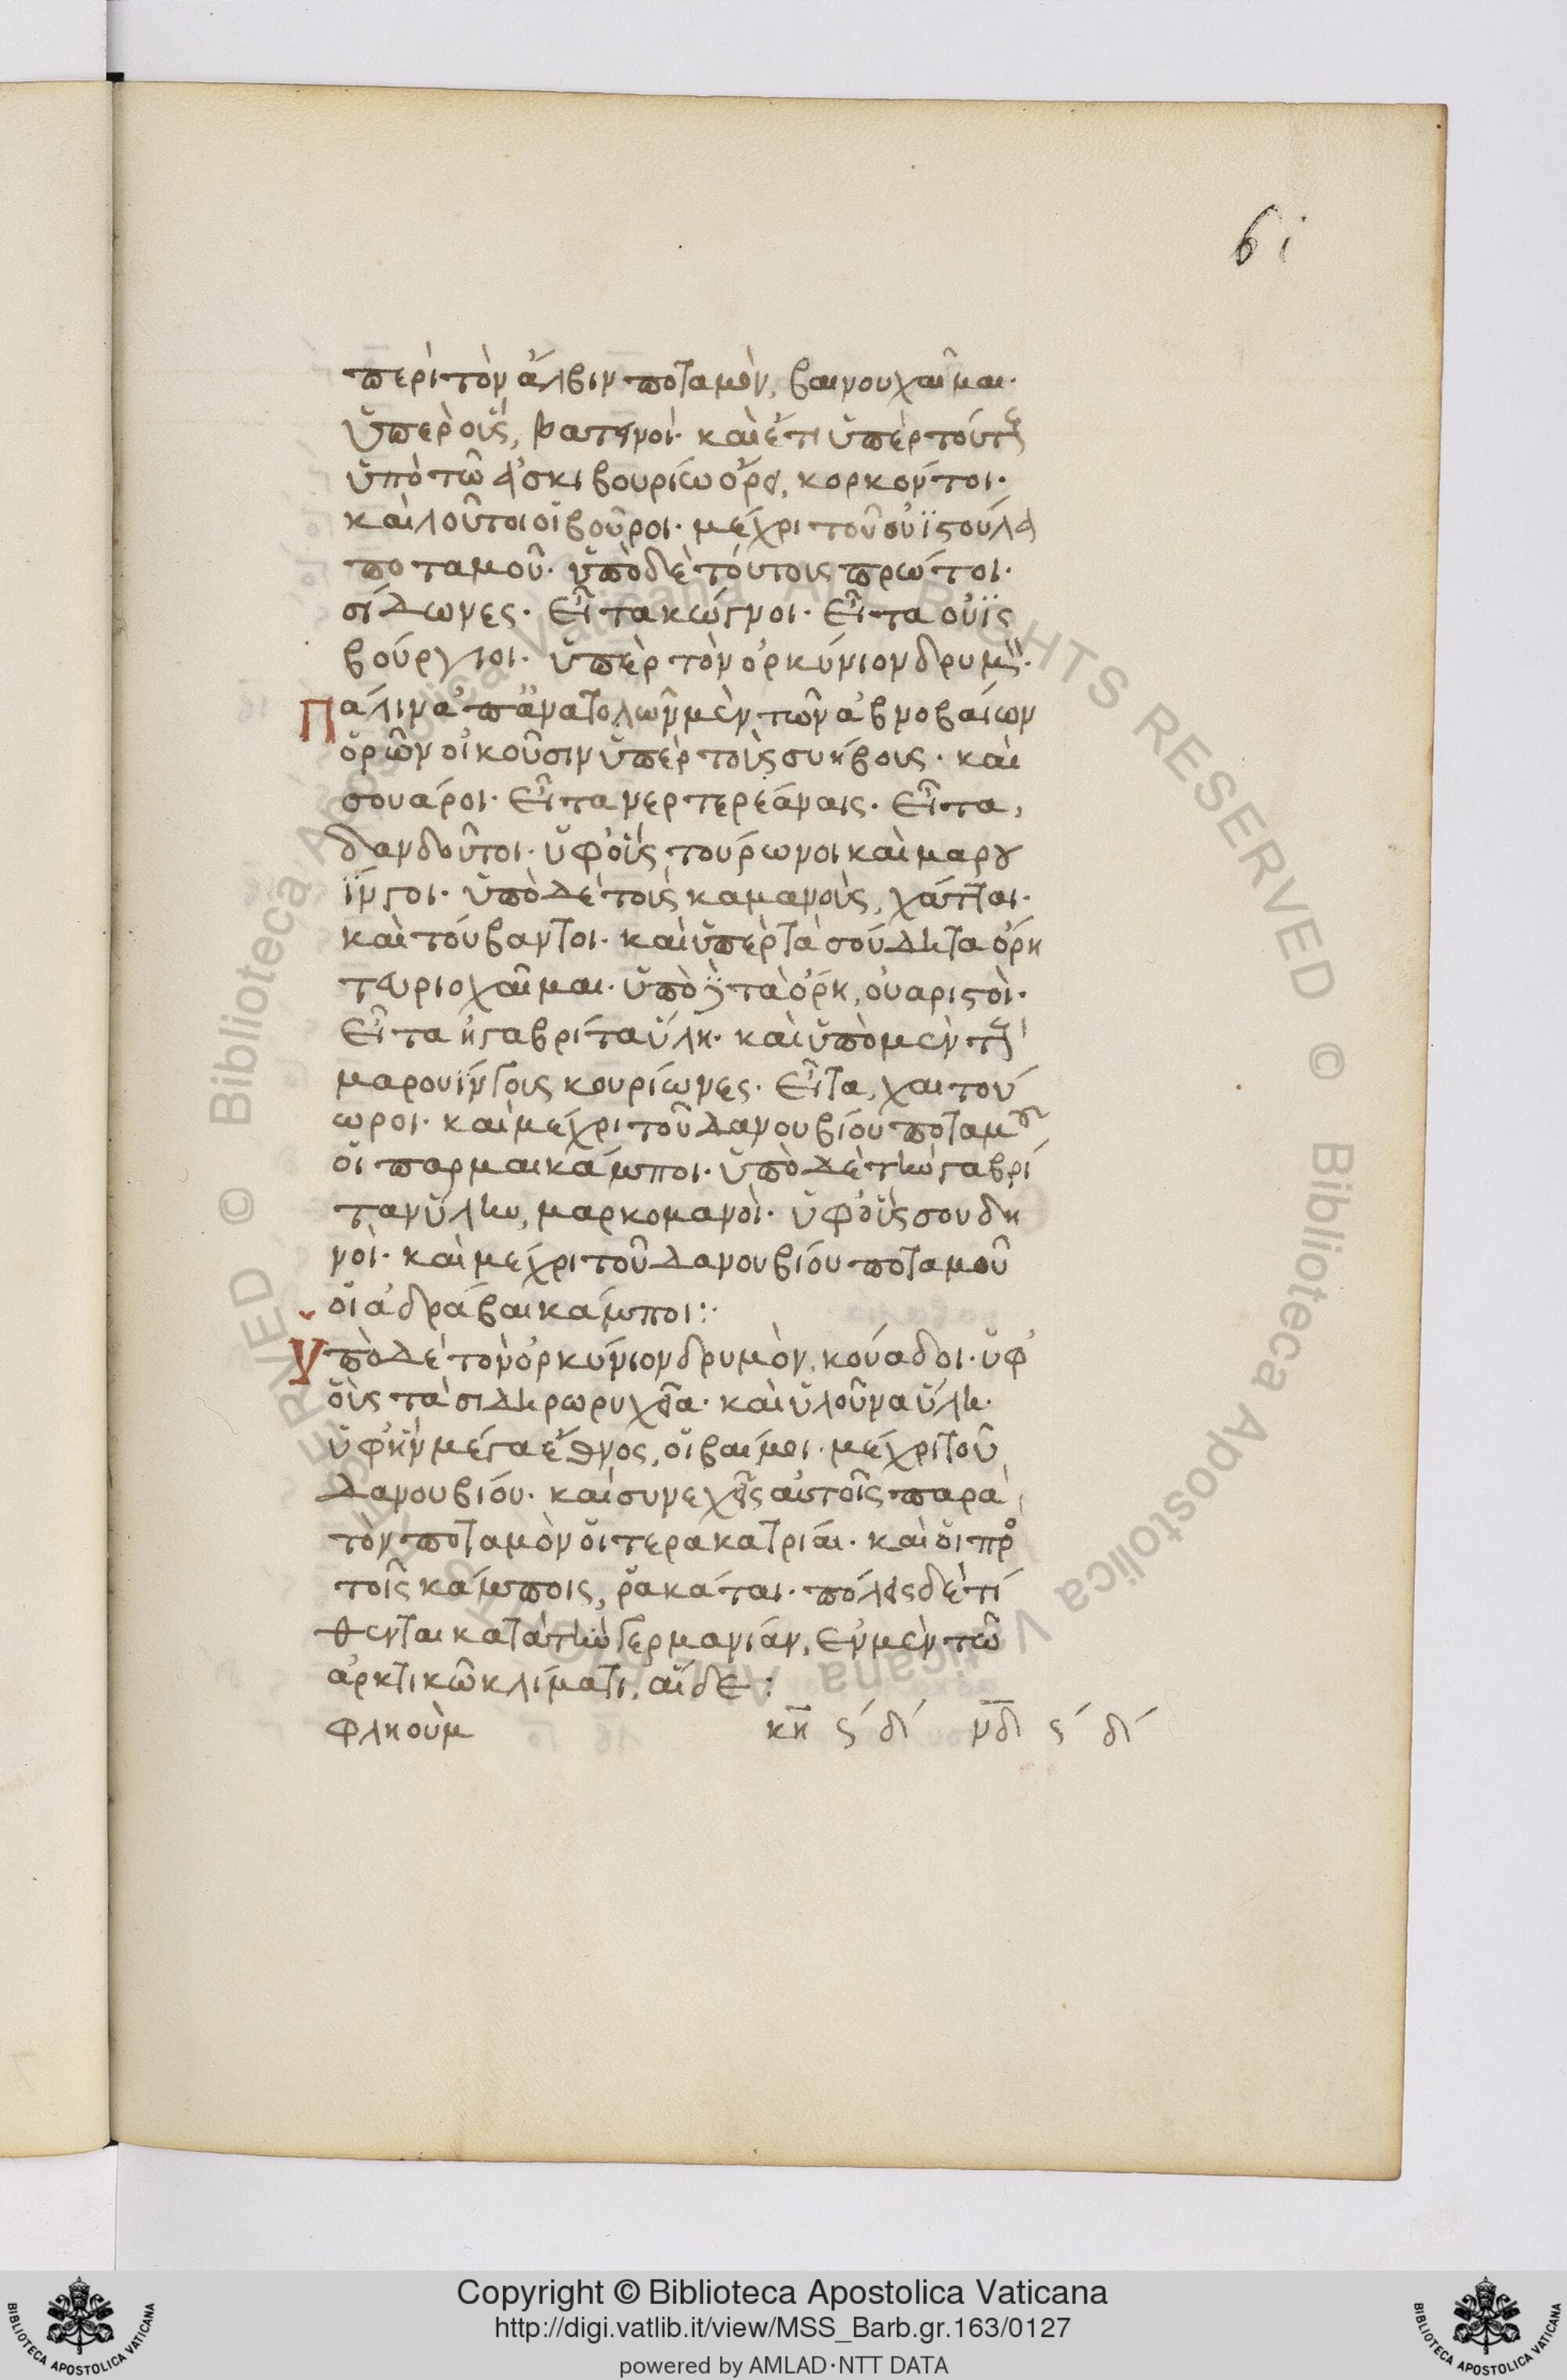 61
περὶ τὸν ἄλβιν ποταμὸν, βαινουχαῖμαι·
ὑπὲρ οὓς, βατηνοί· καὶ ἔτι ὑπὲρ τούτοις
ὑπὸ τῶ ἀσκιβουρίω ὄρει, κορκοντοι·
καὶ λοῦτοι οἱ βοῦροι· μέχρι τοῦ οὐϊστούλα
ποταμοῦ· ὑπὸ δὲ τούτοις πρώτοι·
σίδωνες· εἶτα κώγνοι· εἶτα οὐϊς
βούργιοι· ὑπὲρ τὸν ὀρκύνιον δρυμὸν·
Πάλιν ἀπἀνατολῶν μὲν τῶν ἀβνοβαίων
ὀρῶν οἰκοῦσιν ὑπὲρ τοὺς συήβους· καὶ
σουάροι· εἶτα νερτερέαναις· εἶτα,
δανδοῦτοι· ὑφ' οὓς τουρωνοι καὶ μαρου
ΐνγοι· ὑπὸ δὲ τοὺς καμανοὺς, χάτται·
καὶ τούβαντοι· καὶ ὑπὲρ τὰ σούδητα ὄρη
τευριοχαῖμαι· ὑπὸ δὲ τὰ ὄρη, οὐαριστοὶ·
εἶτα ἡ γαβρίτα ὕλη· καὶ ὑπὸ μὲν τοὺς
μαρουΐνγους κουρίωνες· εἶτα, χαιτού
ωροι· καὶ μέχρι τοῦ δανουβίου ποταμοῦ
οἱ παρμαικάμποι· ὑπὸ δὲ τὴν γαβρί
ταν ὕλην, μαρκομανοὶ· ὑφ' οὓς σουδη
νοὶ· καὶ μέχρι τοῦ δανουβίου ποταμοῦ
οἱ ἀδράβαικάμποι:·
Ὑπὸ δὲ τὸν ὀρκύνιον δρυμὸν, κούαδοι· ὑφ'
οὓς τὰ σιδηρωρυχεῖα· καὶ ἡ λοῦνα ὕλη·
ὑφ' ἣν μέγα ἔθνος, οἱ βαίμοι· μέχρι τοῦ
δανουβίου· καὶ συνεχεῖς αὐτοῖς παρὰ
τὸν ποταμὸν οἵ τερακατρίαι· καὶ οἱ πρὸς
τοῖς κάμποις, ῥακάται· πόλεις δὲ τί
θενται κατὰ τὴν γερμανίαν, ἐν μὲν τῶ
ἀρκτικῶ κλίματι, αἵδε:
φληούμ κη ϛ´ δ´ νδ ϛ´ δ´
Copyright © Biblioteca Apostolica Vaticana
http://digi.vatlib.it/view/MSS_Barb.gr.163/0127
powered by AMLAD·NTT DATA